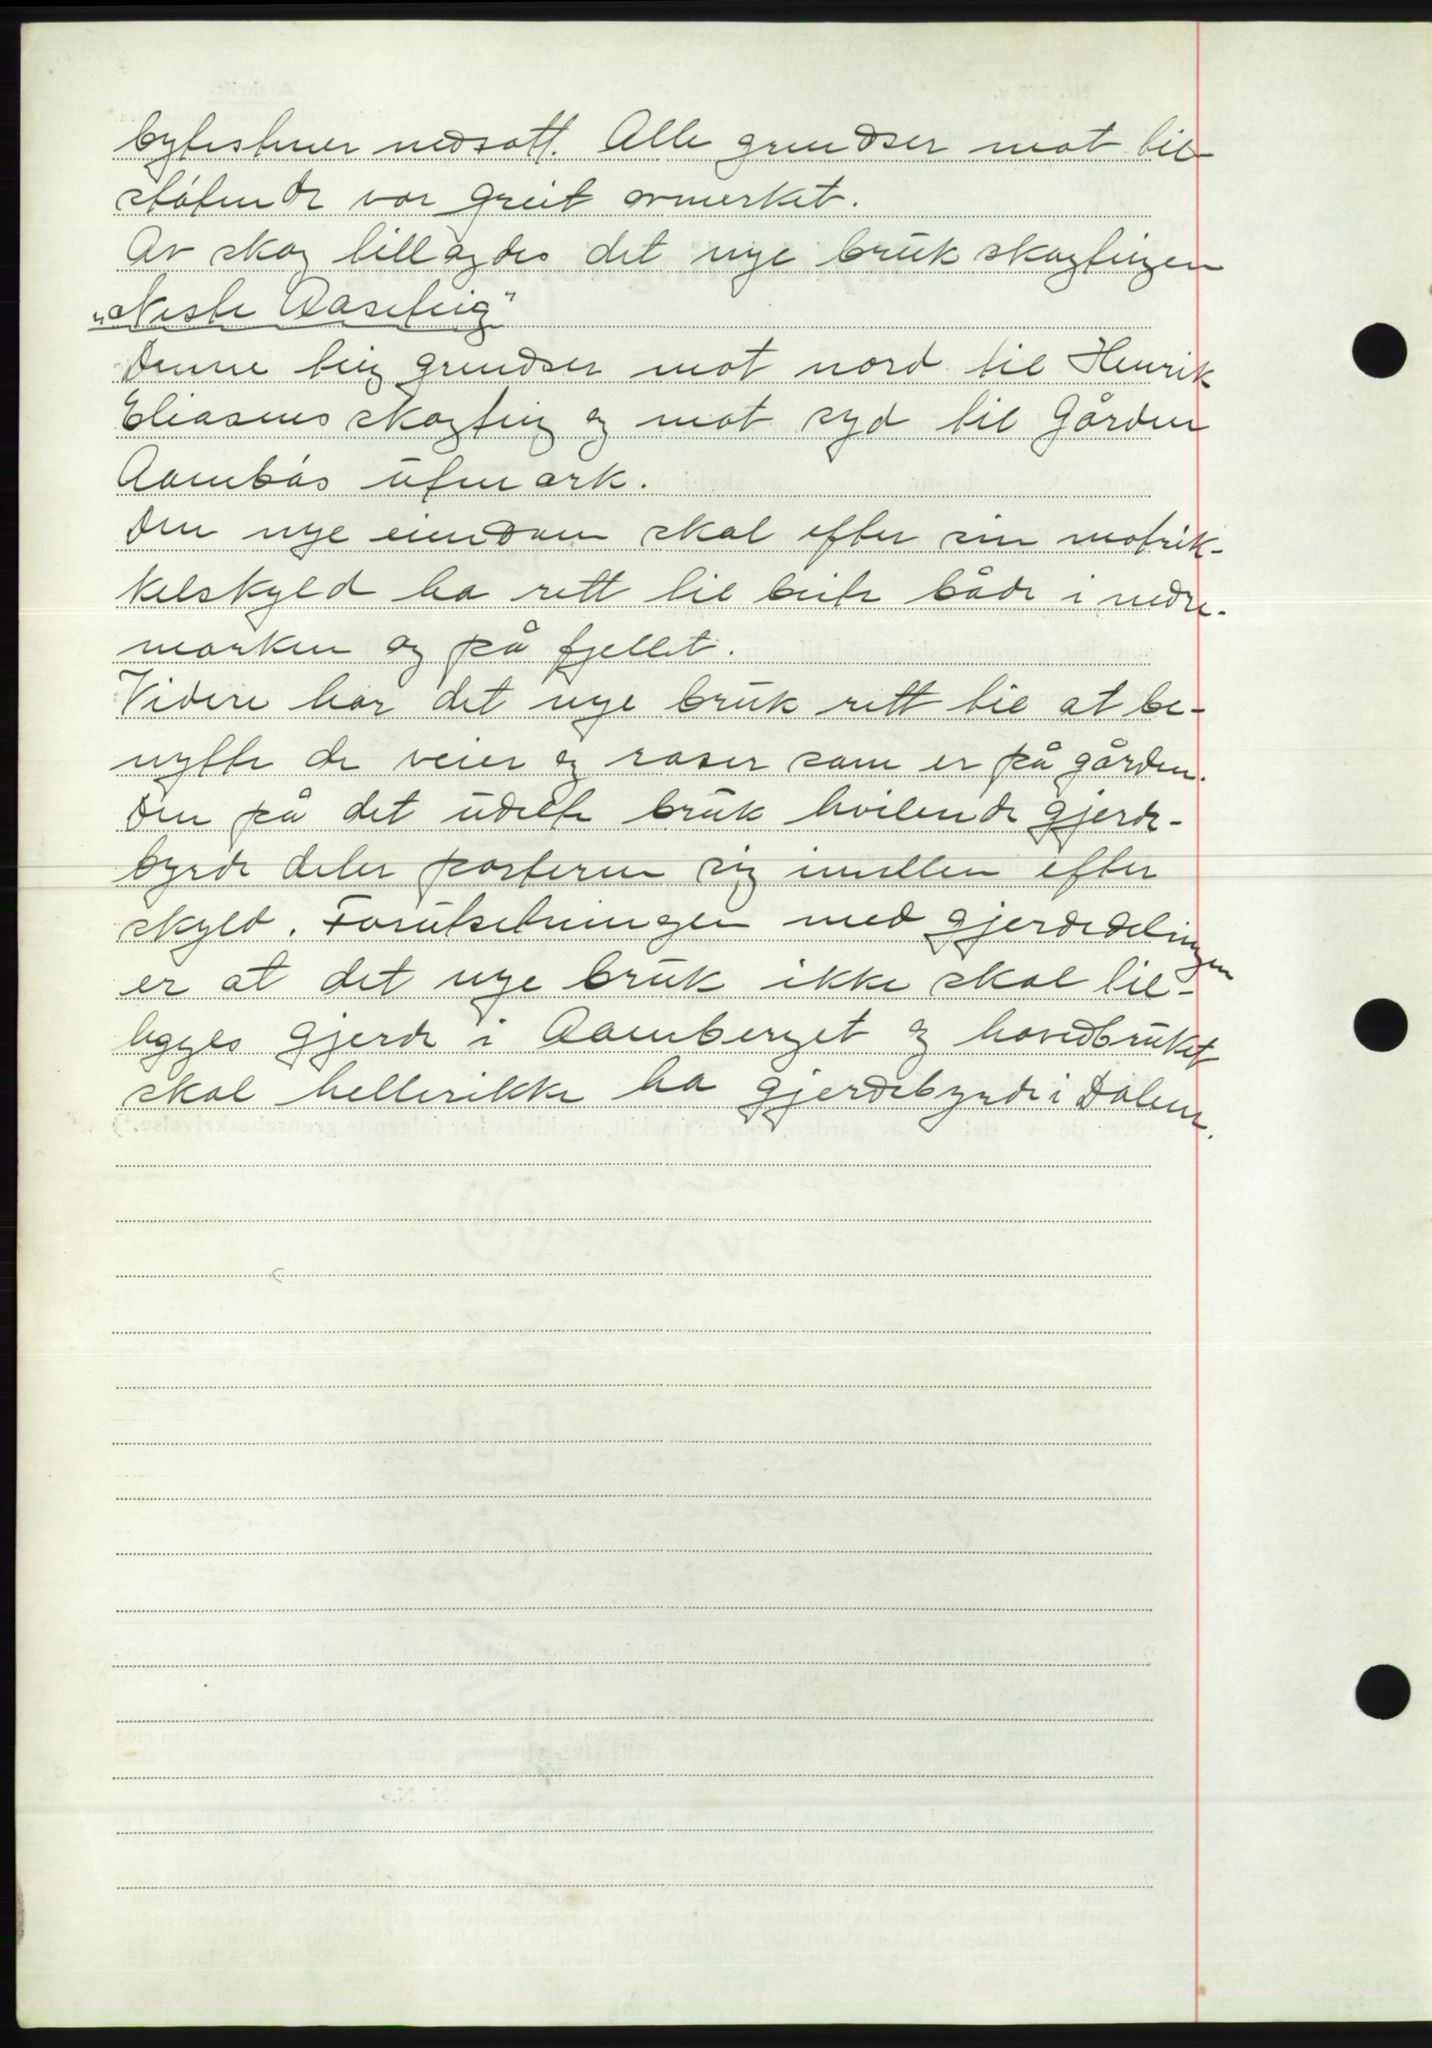 bytestener nedsatt. Alle grendser mot til-
støtende var greit avmerket.
Av skog tillagdes det nye bruk skogteigen
"Neste Aaseteig"
Denne teig grendser mot nord til Henrik
Eliasens skogteig og mot syd til Gården
Aambøs utmark.
Den nye eiendom skal efter sin matrik-
kelskyld ha rett til beite både i nedre-
marken og på fjellet.
Videre har det nye bruk rett til at be-
nytte de veier og raser som er på gården.
Den på det udelte bruk hvilende gjerde-
byrde deler parterne sig imellem efter
skyld. Forutsetningen med gjerdedelingen
er at det nye bruk ikke skal til-
legges gjerde i Aamberget og hovedbruket
skal hellerikke ha gjerdebyrde i Dalen.